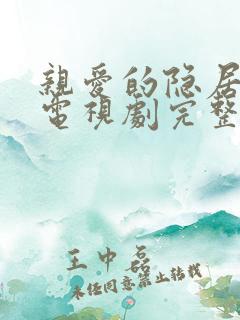 親愛的隐居
電視劇完整
王中磊
未经同意禁止转载